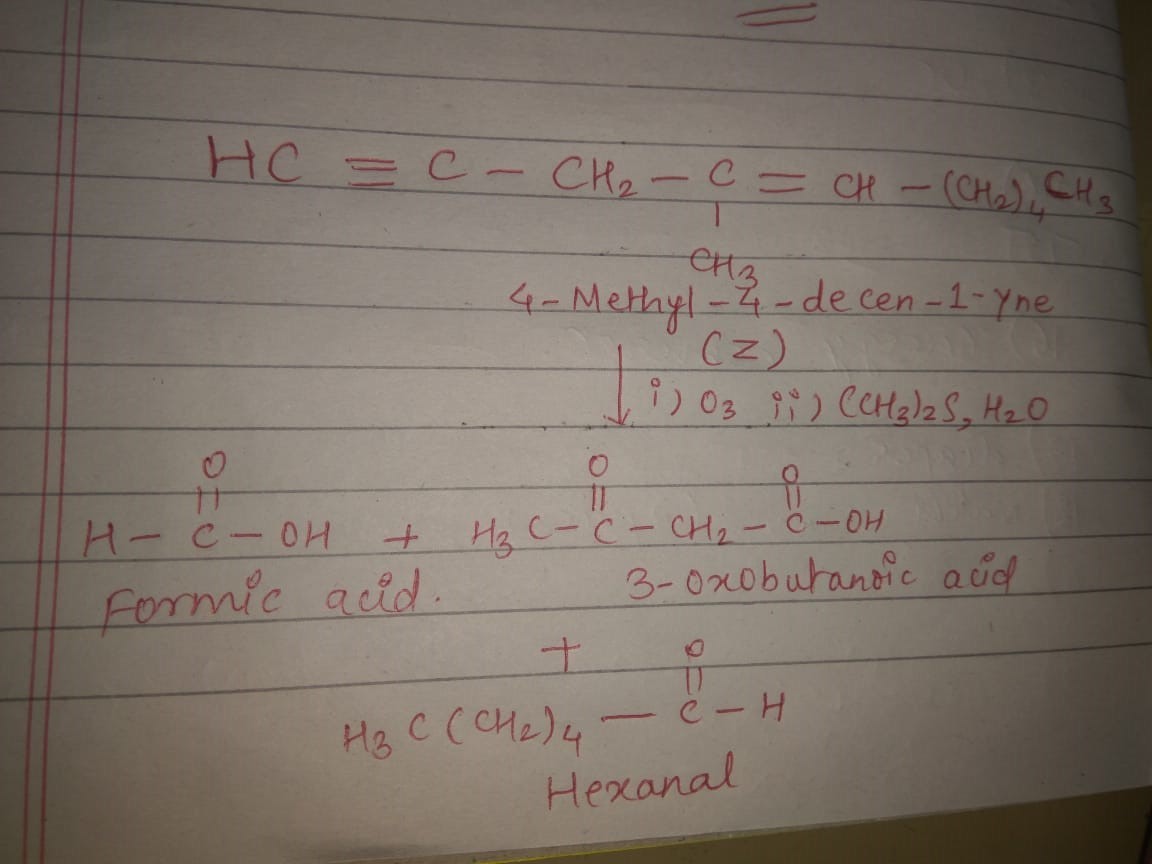 HC ≡ C - CH₂ - C = CH - (CH₂)₄ CH₃
CH₃
4-Methyl-4-decen-1-yne
(Z)
i) O₃ ii) (CH₃)₂S, H₂O
O O O
H - C - OH + H₃C - C - CH₂ - C - OH
Formic acid. 3-oxobutanoic acid
+ O
H₃C(CH₂)₄ - C - H
Hexanal